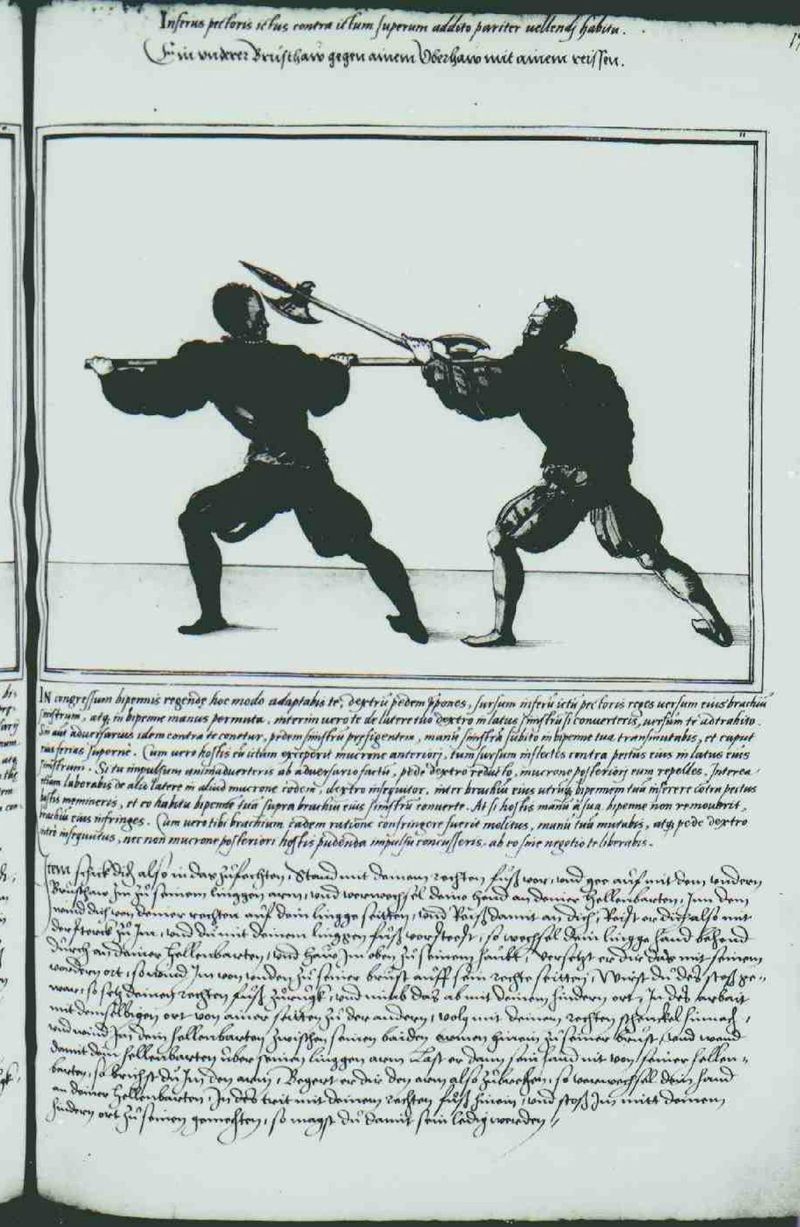 Inferus pectoris ictus contra ictum superum addito pariter vellendj habitu.
Ein underer Brusthaw gegen ainem Oberhaw mit ainem reissen.
17
In congressum bipennis regendę hoc modo adaptabis te, dextrū pedem ppones, sursum inferū ictū pectoris reges versum eius brachiū
sinistrum, atq in bipenne manus permuta, interim vero te de latere tuo dextro in latus sinistrū si converteris, versum te adtrahito.
Sin aut adversarius idem contra te conetur, pedem sinistrū prefigentem, manū sinistrā subito in bipenne tua transmutabis, et caput
eius ferias superne. Cum vero hostis eū ictum exceperit mucrone anteriori, tum sursum inflectes contra pectus eius in latus eius
sinistrum. Si tu impulsum animadverteris ab adversario factū, pede dextro reducto, mucrone posteriori eum repelles. Interea
etiam laborabis de alio latere in aliud mucrone eodem, dextro insequitor, inter brachiū eius utrūq bipennem tuā inserere cōtra pectus
hostis memineris, et eo habitu bipennē tuā supra brachiū eius sinistrū converte. At si hostis manū à sua bipenne non removerit,
brachiū eius infringes. Cum vero tibi brachium eadem ratione confringere fuerit molitus, manū tuā mutabis, atq pede dextro
intrò insequutus, nec non mucrone posteriori hostis pudenda impulsu concusseris, ab eo sine negotio te liberabis.
Item schick dich also in das zůfechten, Stand mit deinem rechten fůß vor, und gee auf mit dem undern
Brusthaw Im zů seinem linggen arm, und verwechsel deine hend an deiner Hellenbarten, Inn dem
wind dich von deiner rechten auf dein lingge seitten, und Reiß damit an dich, Reist er dich also mit
der sterck zů Im, und du mit deinem linggen fůß vor steest, so wechsel dein lingge hand behend
durch an deiner Hellenbarten, und haw Im oben zů seinem haubt, versetzt er dir das mit seinem
vordern ort, so wind Im von unden zů seiner brust auff sein rechte seitten, Wirst du des stoß ge-
war, so setz deinen rechten fůß zůrugk, und nim das ab mit deinem hindern ort, In des arbeit
mit demselbigen ort von ainer seitten zů der andern, volg mit deinem rechten schenckel hinnach,
und wind Im dein hellenbarten zwischen seinen baiden armen hinein zů seiner brust, und wend
damit dein hellenbarten über seinen linggen arm Last er dann sein hand nit von seiner hellen-
barten, so brichst du Im den arm, Begert er dir den arm also zůbrechen, so verwechsel dein hand
an deiner Hellenbarten, In des trit mit deinem rechten fůß hinein, und stoß Im mitt deinem
hindern ort zů seinen gemechten, so magst du damit sein ledig werden